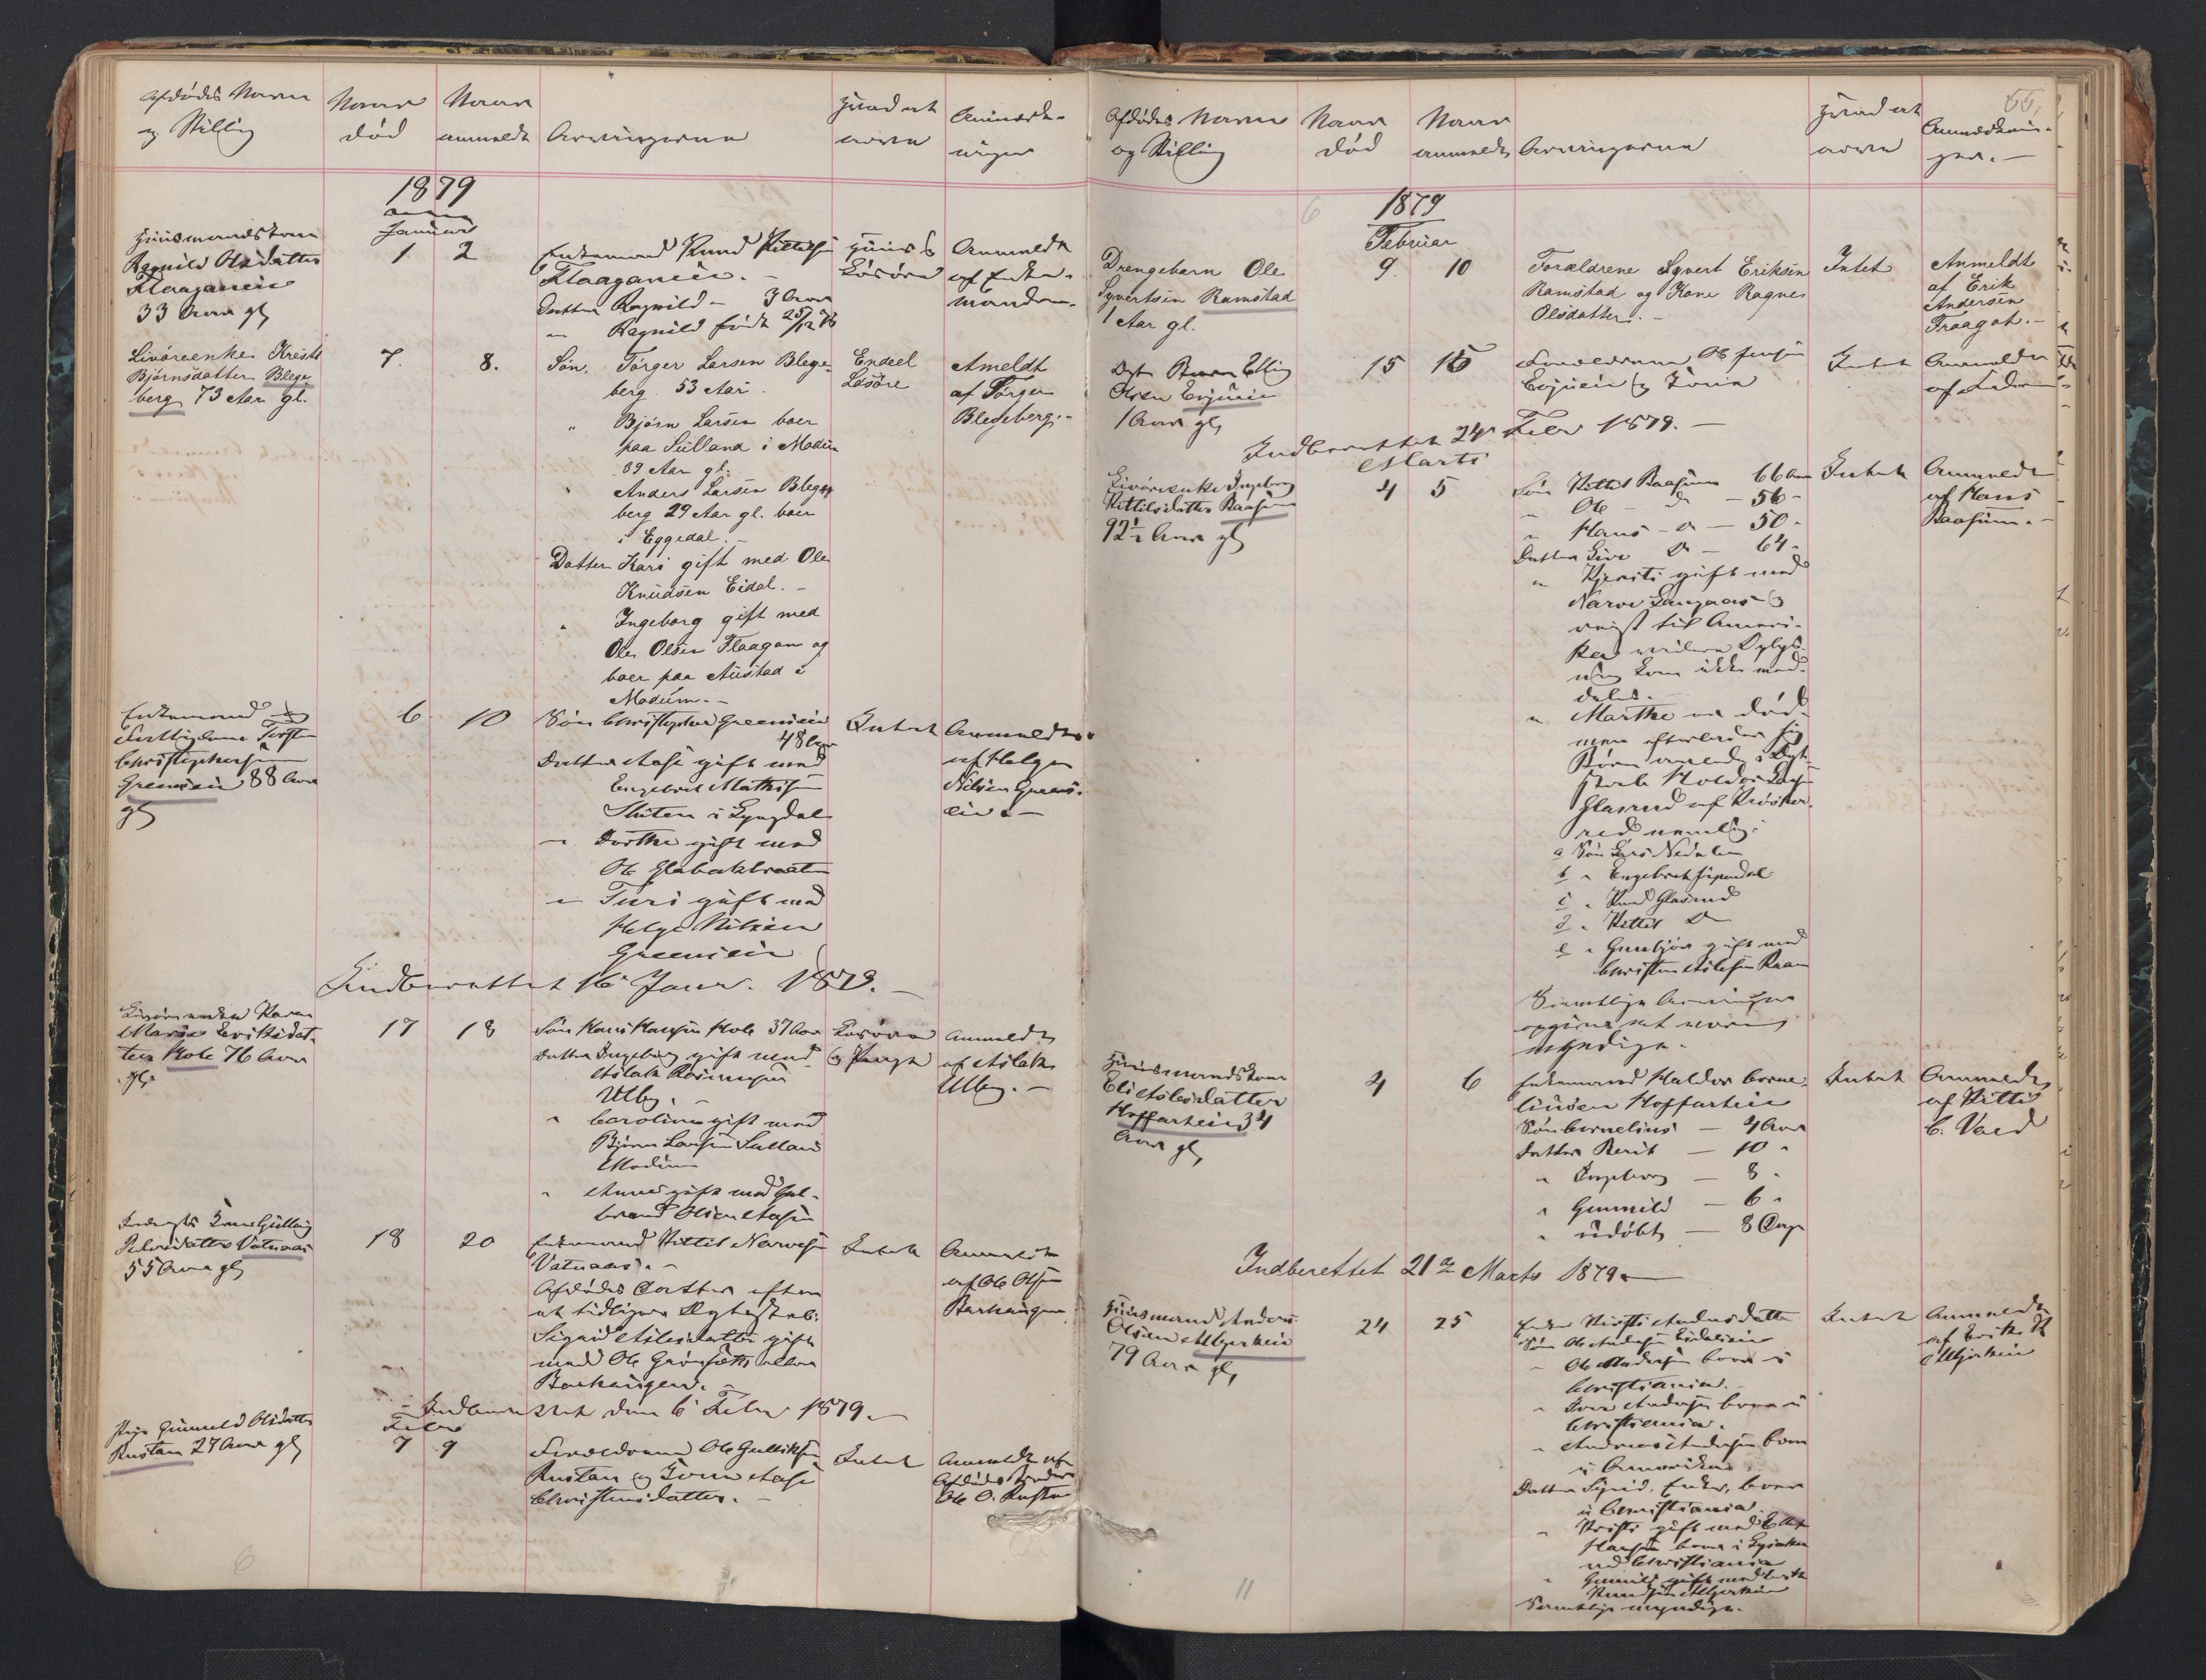 Afdødes Navn
og Stilling
Naar
død
Naar
anmeldt
Arvingerne
Hvad at
arve
Anmærk-
ninger
1879
Januar
Huusmandskone
Ragnild Olsdatter
Flaaganeie
33 Aar gl
1
2
Enkemand Knud Kittilsen
Flaaganeie. -
Datter Ragnild - 3 Aar
" Ragnild født 25/12 78
Huus &
Løsøre
Anmeldt
af Enke-
manden.
Livøreenke Kristi
Bjørnsdatter Blege
berg 73 Aar gl.
7.
8.
Søn, Torger Larsen Blege-
berg. 53 Aar.
" Bjørn Larsen boer
paa Sülland i Modum
39 Aar gl.
" Anders Larsen Blege
berg 29 Aar gl. boer
i Eggedal. -
Datter Kari gift med Ole
Knudsen Eidal. -
" Ingeborg gift med
Ole Olsen Flaagan og
boer paa Austad i
Modum. -
Endeel
Løsøre
Anmeldt
af Torger
Blegeberg. -
Enkemand
Christophersen
Greenseie 88 Aar
gl
6
10
Søn Christopher Greenseie
48 Aar
Datter Aase gift med
Engebret Mathisen
i Lyngdal
" Dorthe gift med
Ole Glabakbraaten
" Turi gift med
Helge Nilsen
Greenseie
Intet
Anmeldt
af Helge
Nilsen Greens-
eie. -
Indberettet 16 Janr. 1879. -
Karen
Maria
ter Hole 76 Aar
gl.
17
18
Søn Hans Hansen Hole 37 Aar
Datter Ingeborg gift med
Aslak Rasmussen
Ulby. -
" Caroline gift med
Bjørn Larsen Sulland
Modum
" Anne gift med Gul-
brand Olsen Aasen
Løsøre
og Penge
Anmeldt
af Aslak
Ulby. -
Vatnaas
55 Aar gl
18
20
Enkemand Kittil Narvesen
Vatnaas. -
Afdødes Datter efter
et tidligere Ægteskab:
Sigrid Aslesdatter gift
med Ole
Intet
Anmeldt
af Ole Olsen
Indberettet den 6 Febr 1879. -
Febr
Pige Gunnild Olsdatter
Rustan 27 Aar gl
7
9
Forældrene Ole Gulliksen
Rustan og Kone Aase
Christensdatter. -
Intet
Anmeldt af
Afdødes Broder
Ole O. Rustan
6
Afdødes Navn
og Stilling
Naar
død
Naar
anmeldt
Arvingerne
Hvad at
arve
Anmærknin-
ger. -
55.
1879
Februar
Drengebarn Ole
Syvertsen Ramstad
1 Aar gl.
9.
10
Forældrene Syvert Eriksen
Ramstad og Kone Ragne
Olsdatter. -
Intet
Anmeldt
af Erik
Andersen
Fraagot. -
Dgt Barn Elling
Olsen Evjueie
1 Aar gl
15
15
Forældrene Ole Jensen
Evjueie og Kone
Intet
Anmeldt
af Faderen
Indberettet 24 Febr 1879. -
Marts
Livøreenke Ingeborg
Kittilsdatter Raaen
92½ Aar gl
4
5
Søn Kittil 66 Aar
" Ole - do - 56 -
" Hans - do - 50 -
Datter Live do - 64 -
" Kjersti gift med
Narve Langaas og
reist til Ameri-
ka videre Oplys-
ning kan ikke med-
deles. -
" Marthe er død
men efterlader sig
Børn
Haldor
Glasrud af Krødshe-
red nemlig:
a Søn Lars Nedalen
b " Engebret
c " Knud Glasrud
d " Kittil do
e " Gunbjør gift med
Christen Aslesen Raaen
Samtlige Arvinger
opgives at være
myndige. -
Intet
Anmeldt
af Hans
Huusmandskone
Eli Aslesdatter
Hoffarteie 34
Aar gl
4
6
Enkemand Haldor Corne-
liusen Hoffarteie
Søn Cornelius - 4 Aar
Datter Berit - 10 "
" Ingeborg - 8 "
" Gunnild - 6 "
" udøbt - 8 Dage
Intet
Anmeldt
af Kittil
C. Vaed
Indberettet 21de Marts 1879. -
Huusmand Anders
Olsen
79 Aar gl,
24
25
Enke Kristi Andersdatter
Søn Ole Andersen
" Ole Andersen boer i
Christiania. -
" Iver Andersen boer i
Christiania.
" Andreas Andersen boer
i Amerika
Datter Sigrid, Enke, boer
i Christiania.
" Kristi gift med
Hansen boer i
ved Christiania
" Gunild gift med Erik
Samtlige myndige. -
Intet
Anmeldt
af Erik K
11